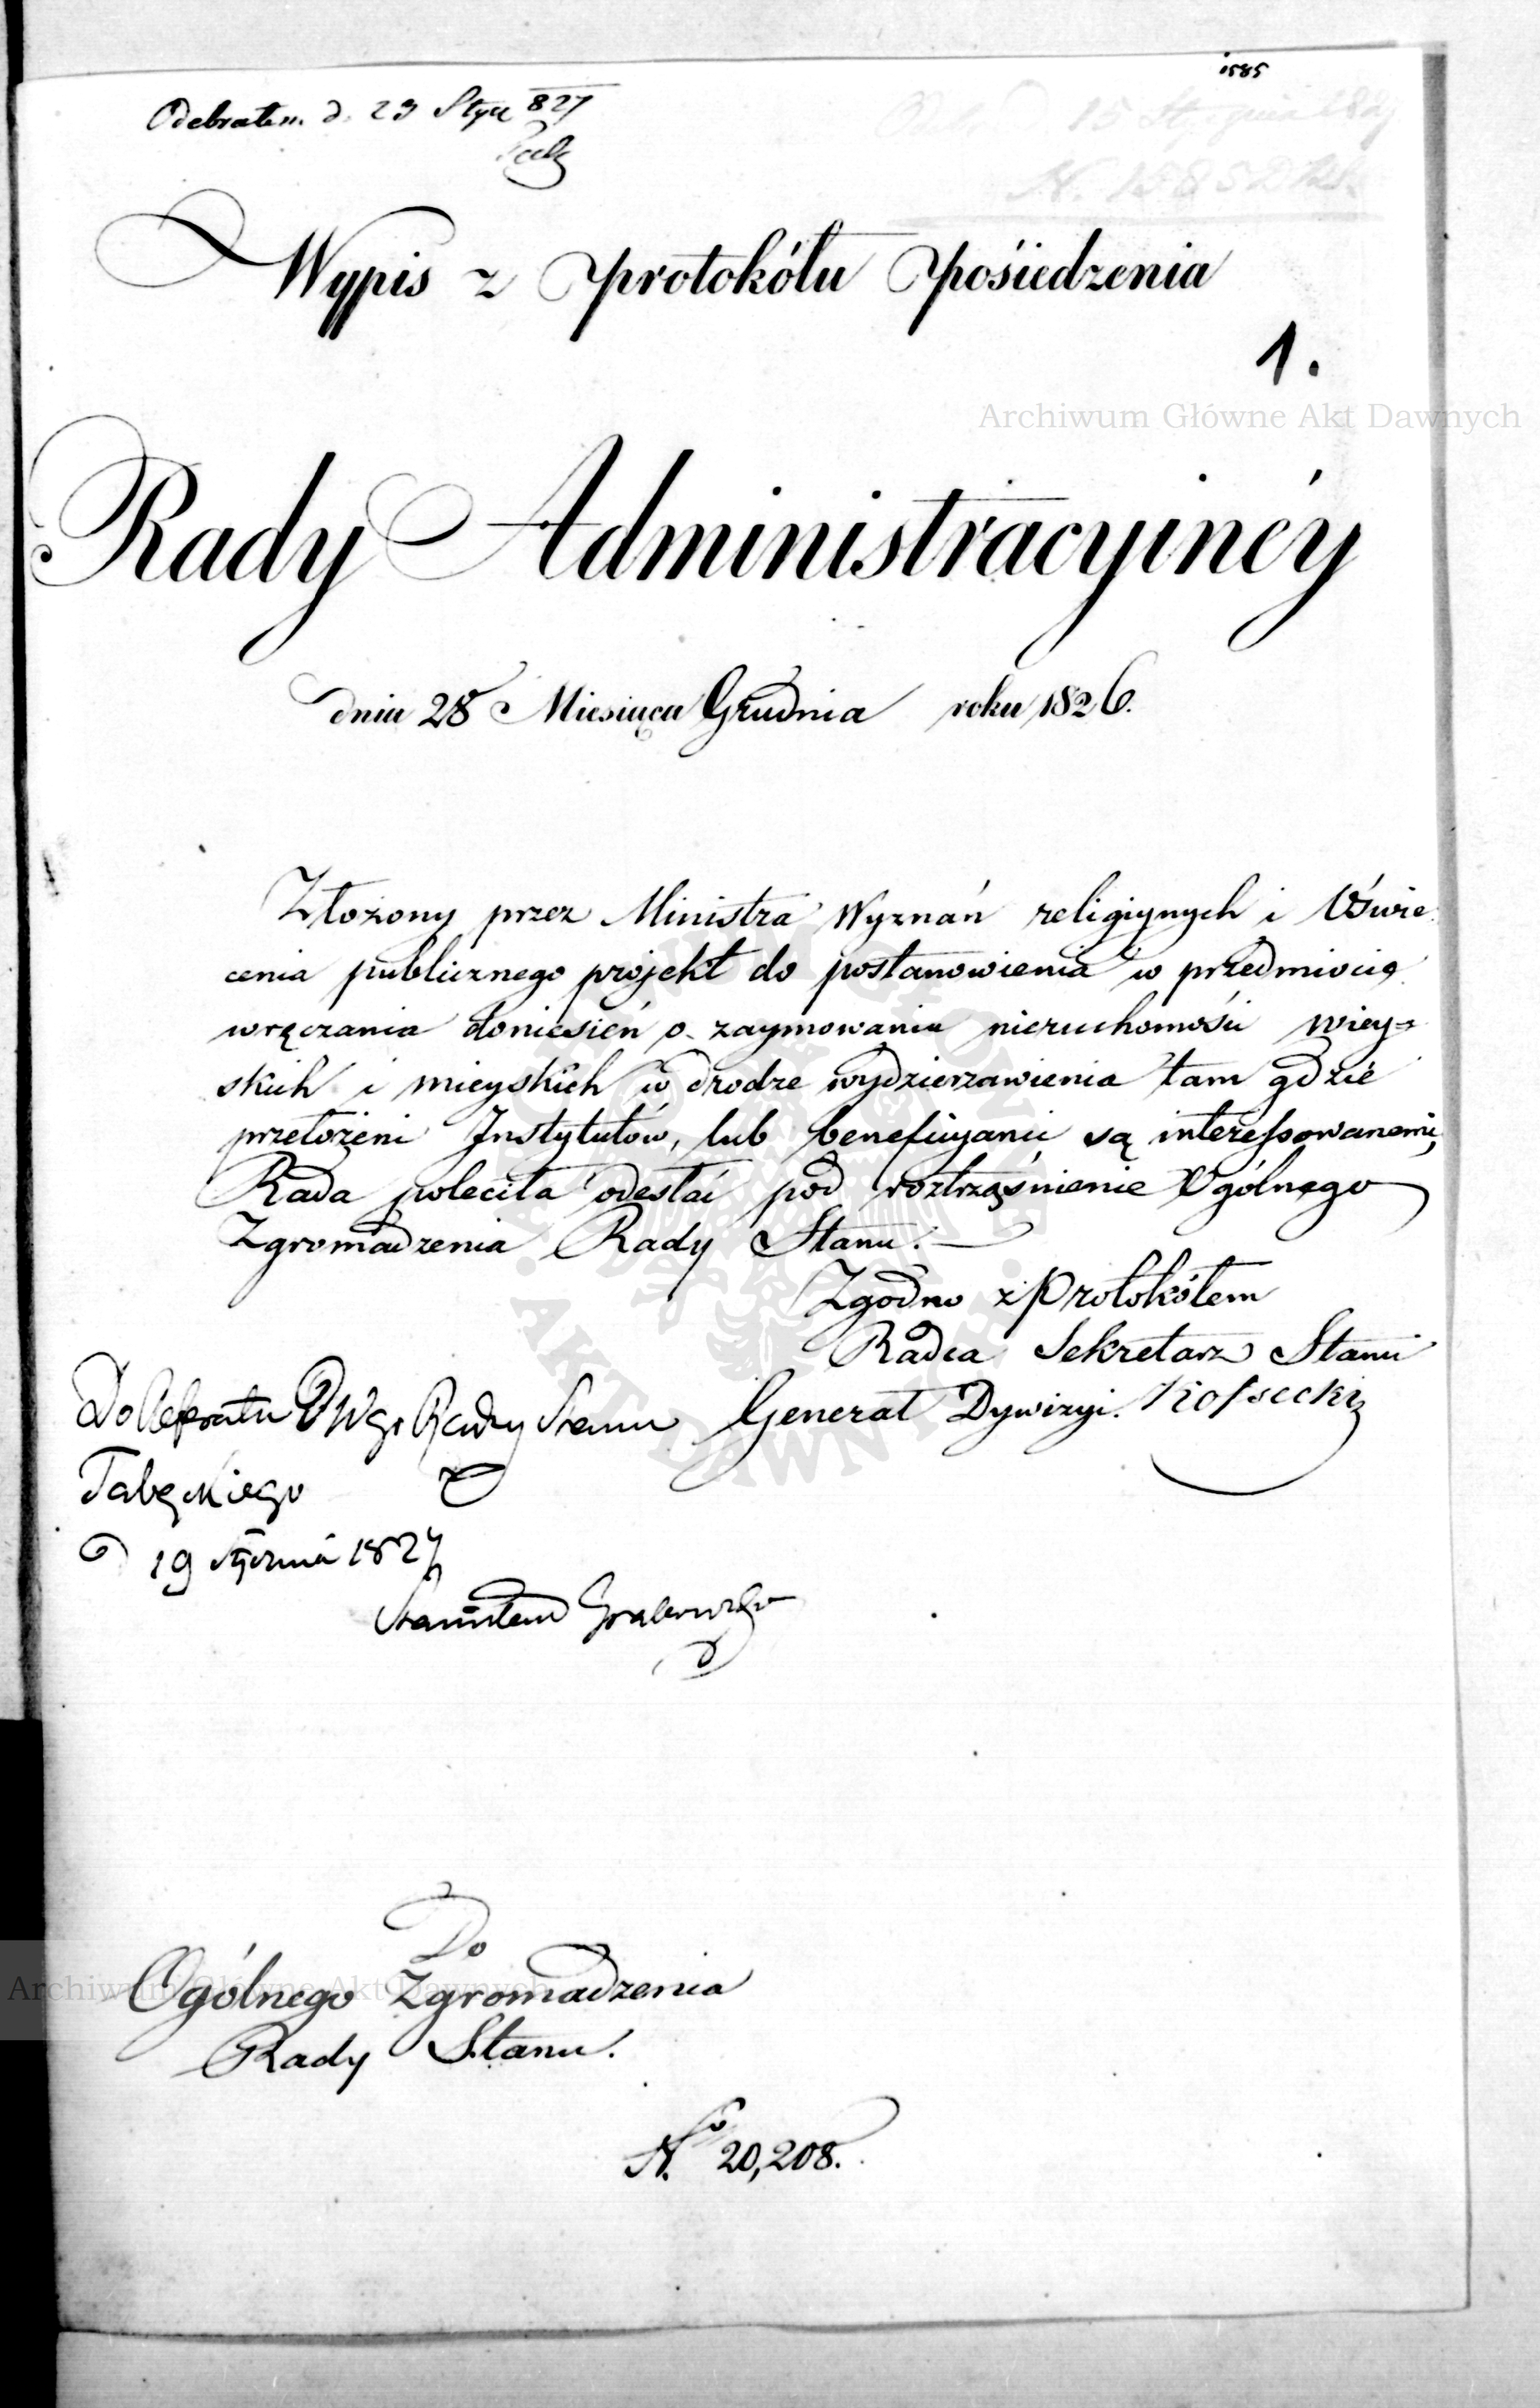 1585
Odebrałem d. 23 Stycz 827
15 Stycznia 1827
N. 1585
Wypis z Protokółu Pośiedzenia
1.
Archiwum Główne Akt Dawnych
Rady Administracyinéy
dnia 28 Miesiąca Grudnia roku 1826.
Złożony przez Ministra Wyznań religiynych i Oświe
cenia publicznego projekt do postanowienia w przedmiocie
wręczania doniesień o zaymowaniu nieruchomości wiey=
skich i mieyskich w drodze wydzierzawienia tam gdzie
przełożeni Instytutów, lub beneficyanci są interessowanemi,
Rada poleciła odesłać pod roztrząśnienie Ogólnego
Zgromadzenia Rady Stanu.
Zgodno z Protokółem
Radca Sekretarz Stanu
Generał Dywizyi. Kossecki
Do Referatu Rady Stanu
d 19 Stycznia 1827
Stanisław Grabowski
Do
Ogólnego Zgromadzenia
Archiwum Główne Akt Dawnych
Rady Stanu.
No 20,208.